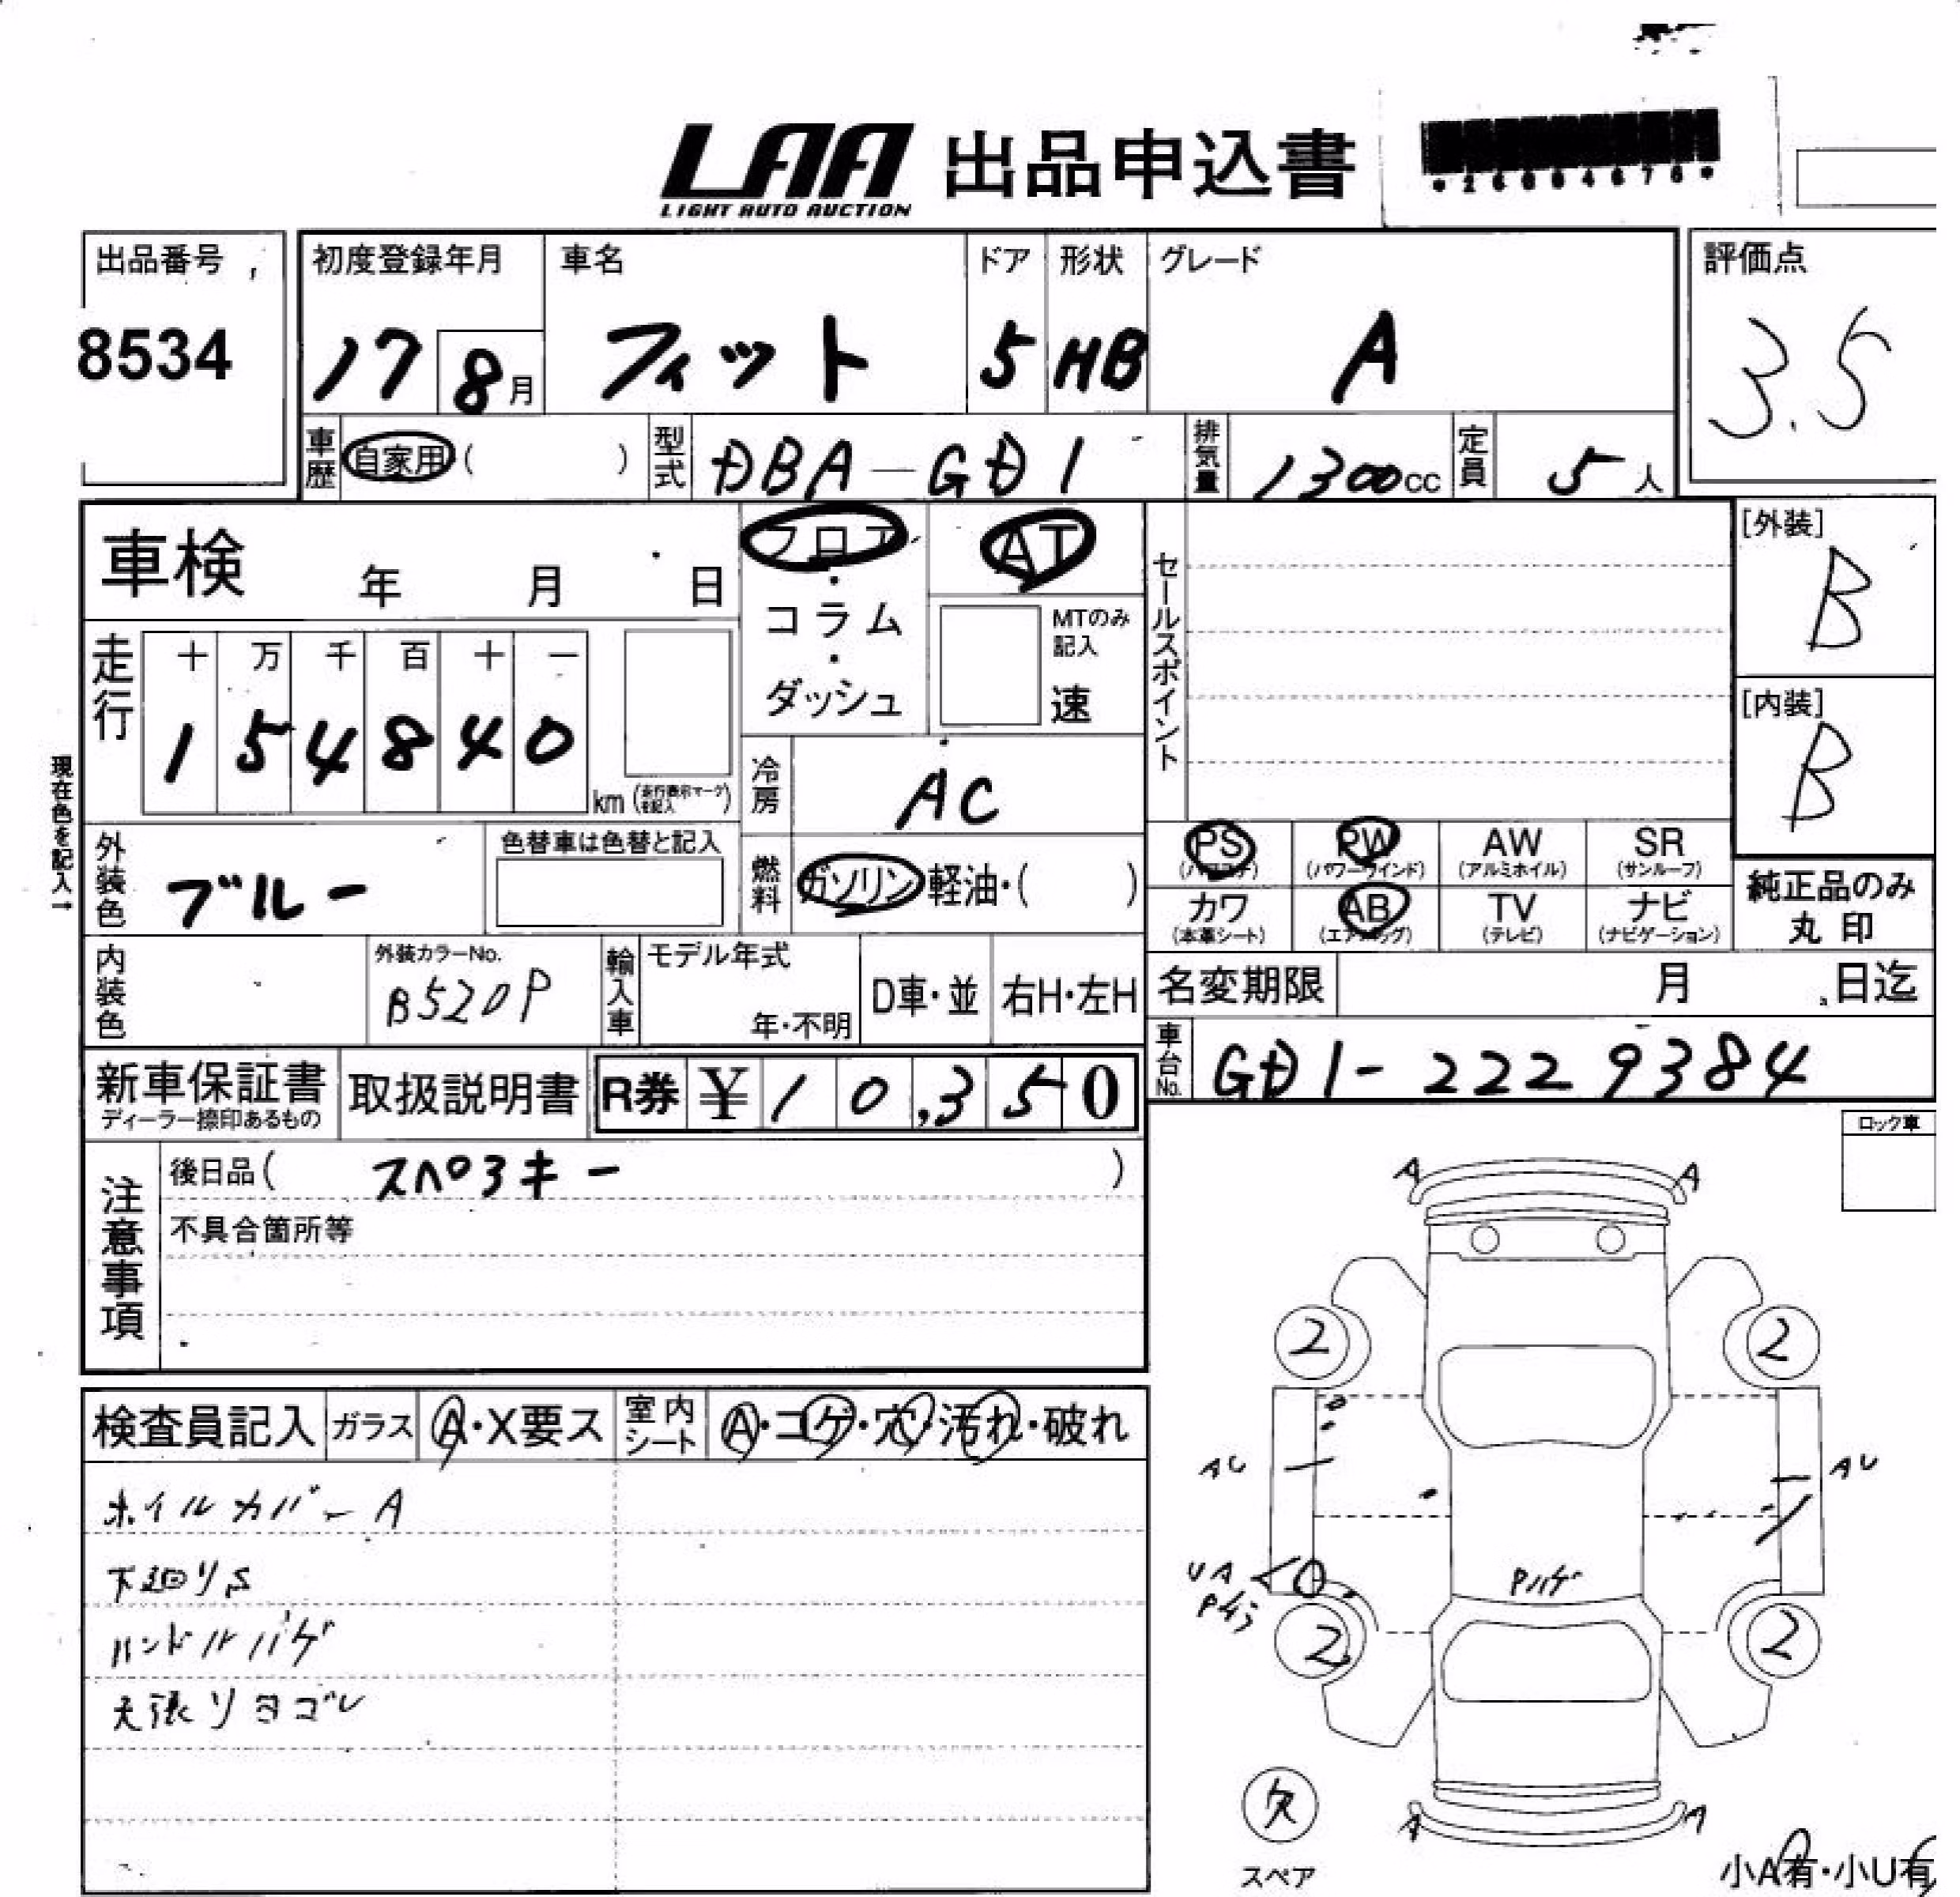 LAA 出品申込書
LIGHT AUTO AUCTION
出品番号
8534
初度登録年月
17 8月
車名
フィット
ドア
5
形状
HB
グレード
A
評価点
3.5
車歴 自家用 ( )
型式 DBA-GD1
排気量 1300cc
定員 5人
車検 年 月 日
フロア・コラム・ダッシュ
AT
MTのみ記入
速
セールスポイント
[外装]
B
[内装]
B
走行
十 万 千 百 十 一
1 5 4 8 4 0 km (走行表示マークを記入)
現在色を記入→
冷房 AC
外装色 ブルー
色替車は色替と記入
燃料 ガソリン・軽油・( )
PS (パワステ)
PW (パワーウインド)
AW (アルミホイル)
SR (サンルーフ)
カワ (本革シート)
AB (エアバッグ)
TV (テレビ)
ナビ (ナビゲーション)
純正品のみ
丸印
内装色
外装カラーNo.
B520P
輸入車
モデル年式
年・不明
D車・並
右H・左H
名変期限 月 日迄
車台No. GD1-2229384
新車保証書
ディーラー捺印あるもの
取扱説明書
R券 ¥10,350
注意事項
後日品( スペアキー )
不具合箇所等
ロック車
検査員記入
ガラス A・X要ス
室内シート A・コゲ・穴・汚れ・破れ
ホイルカバーA
下廻りS
ハンドルハゲ
天張リヨゴレ
A A
2 2
AU AU
UA
Pハゲ
2 2
欠
スペア
A A
小A有・小U有